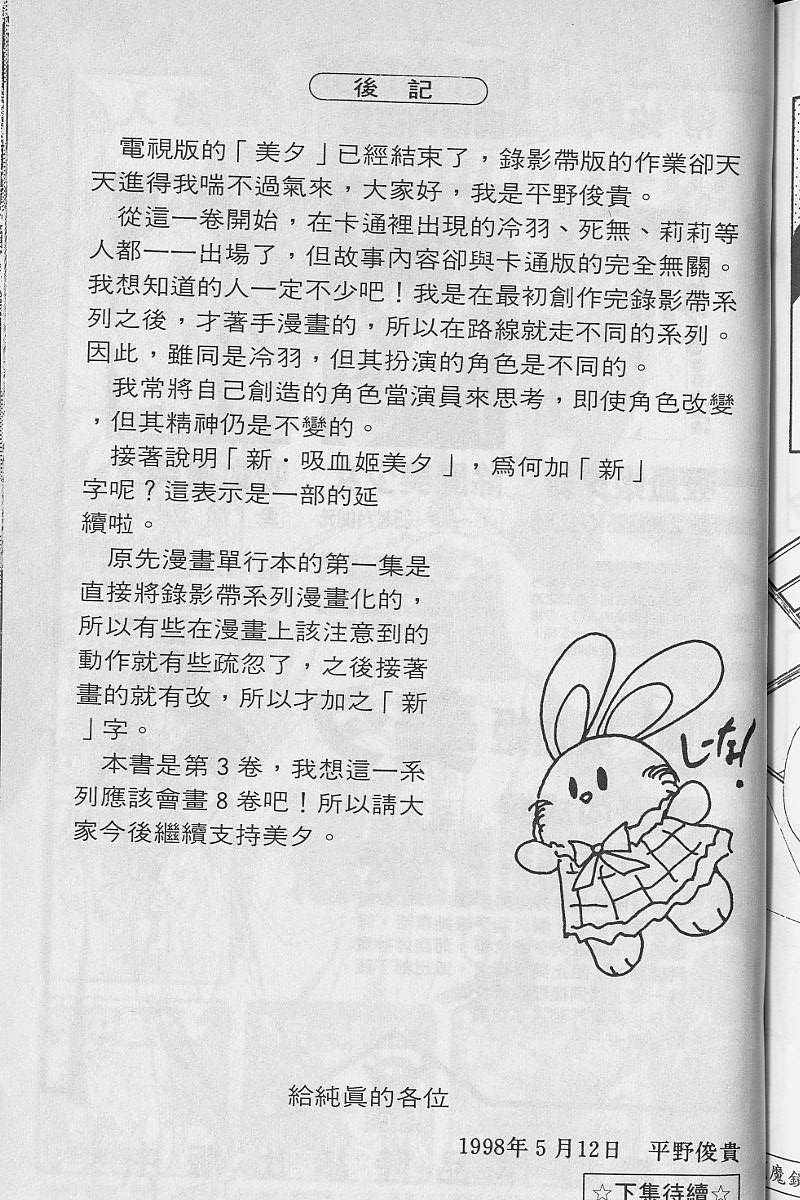 後記
電視版的「美夕」已經結束了，錄影帶版的作業卻天
天進得我喘不過氣來，大家好，我是平野俊貴。
從這一卷開始，在卡通裡出現的冷羽、死無、莉莉等
人都一一出場了，但故事內容卻與卡通版的完全無關。
我想知道的人一定不少吧！我是在最初創作完錄影帶系
列之後，才著手漫畫的，所以在路線就走不同的系列。
因此，雖同是冷羽，但其扮演的角色是不同的。
我常將自己創造的角色當演員來思考，即使角色改變
，但其精神仍是不變的。
接著說明「新・吸血姬美夕」，爲何加「新」
字呢？這表示是一部的延
續啦。
原先漫畫單行本的第一集是
直接將錄影帶系列漫畫化的，
所以有些在漫畫上該注意到的
動作就有些疏忽了，之後接著
畫的就有改，所以才加之「新
」字。
本書是第3卷，我想這一系
列應該會畫8卷吧！所以請大
家今後繼續支持美夕。
しーな！
給純眞的各位
1998年5月12日 平野俊貴
☆下集待續☆
魔鏡